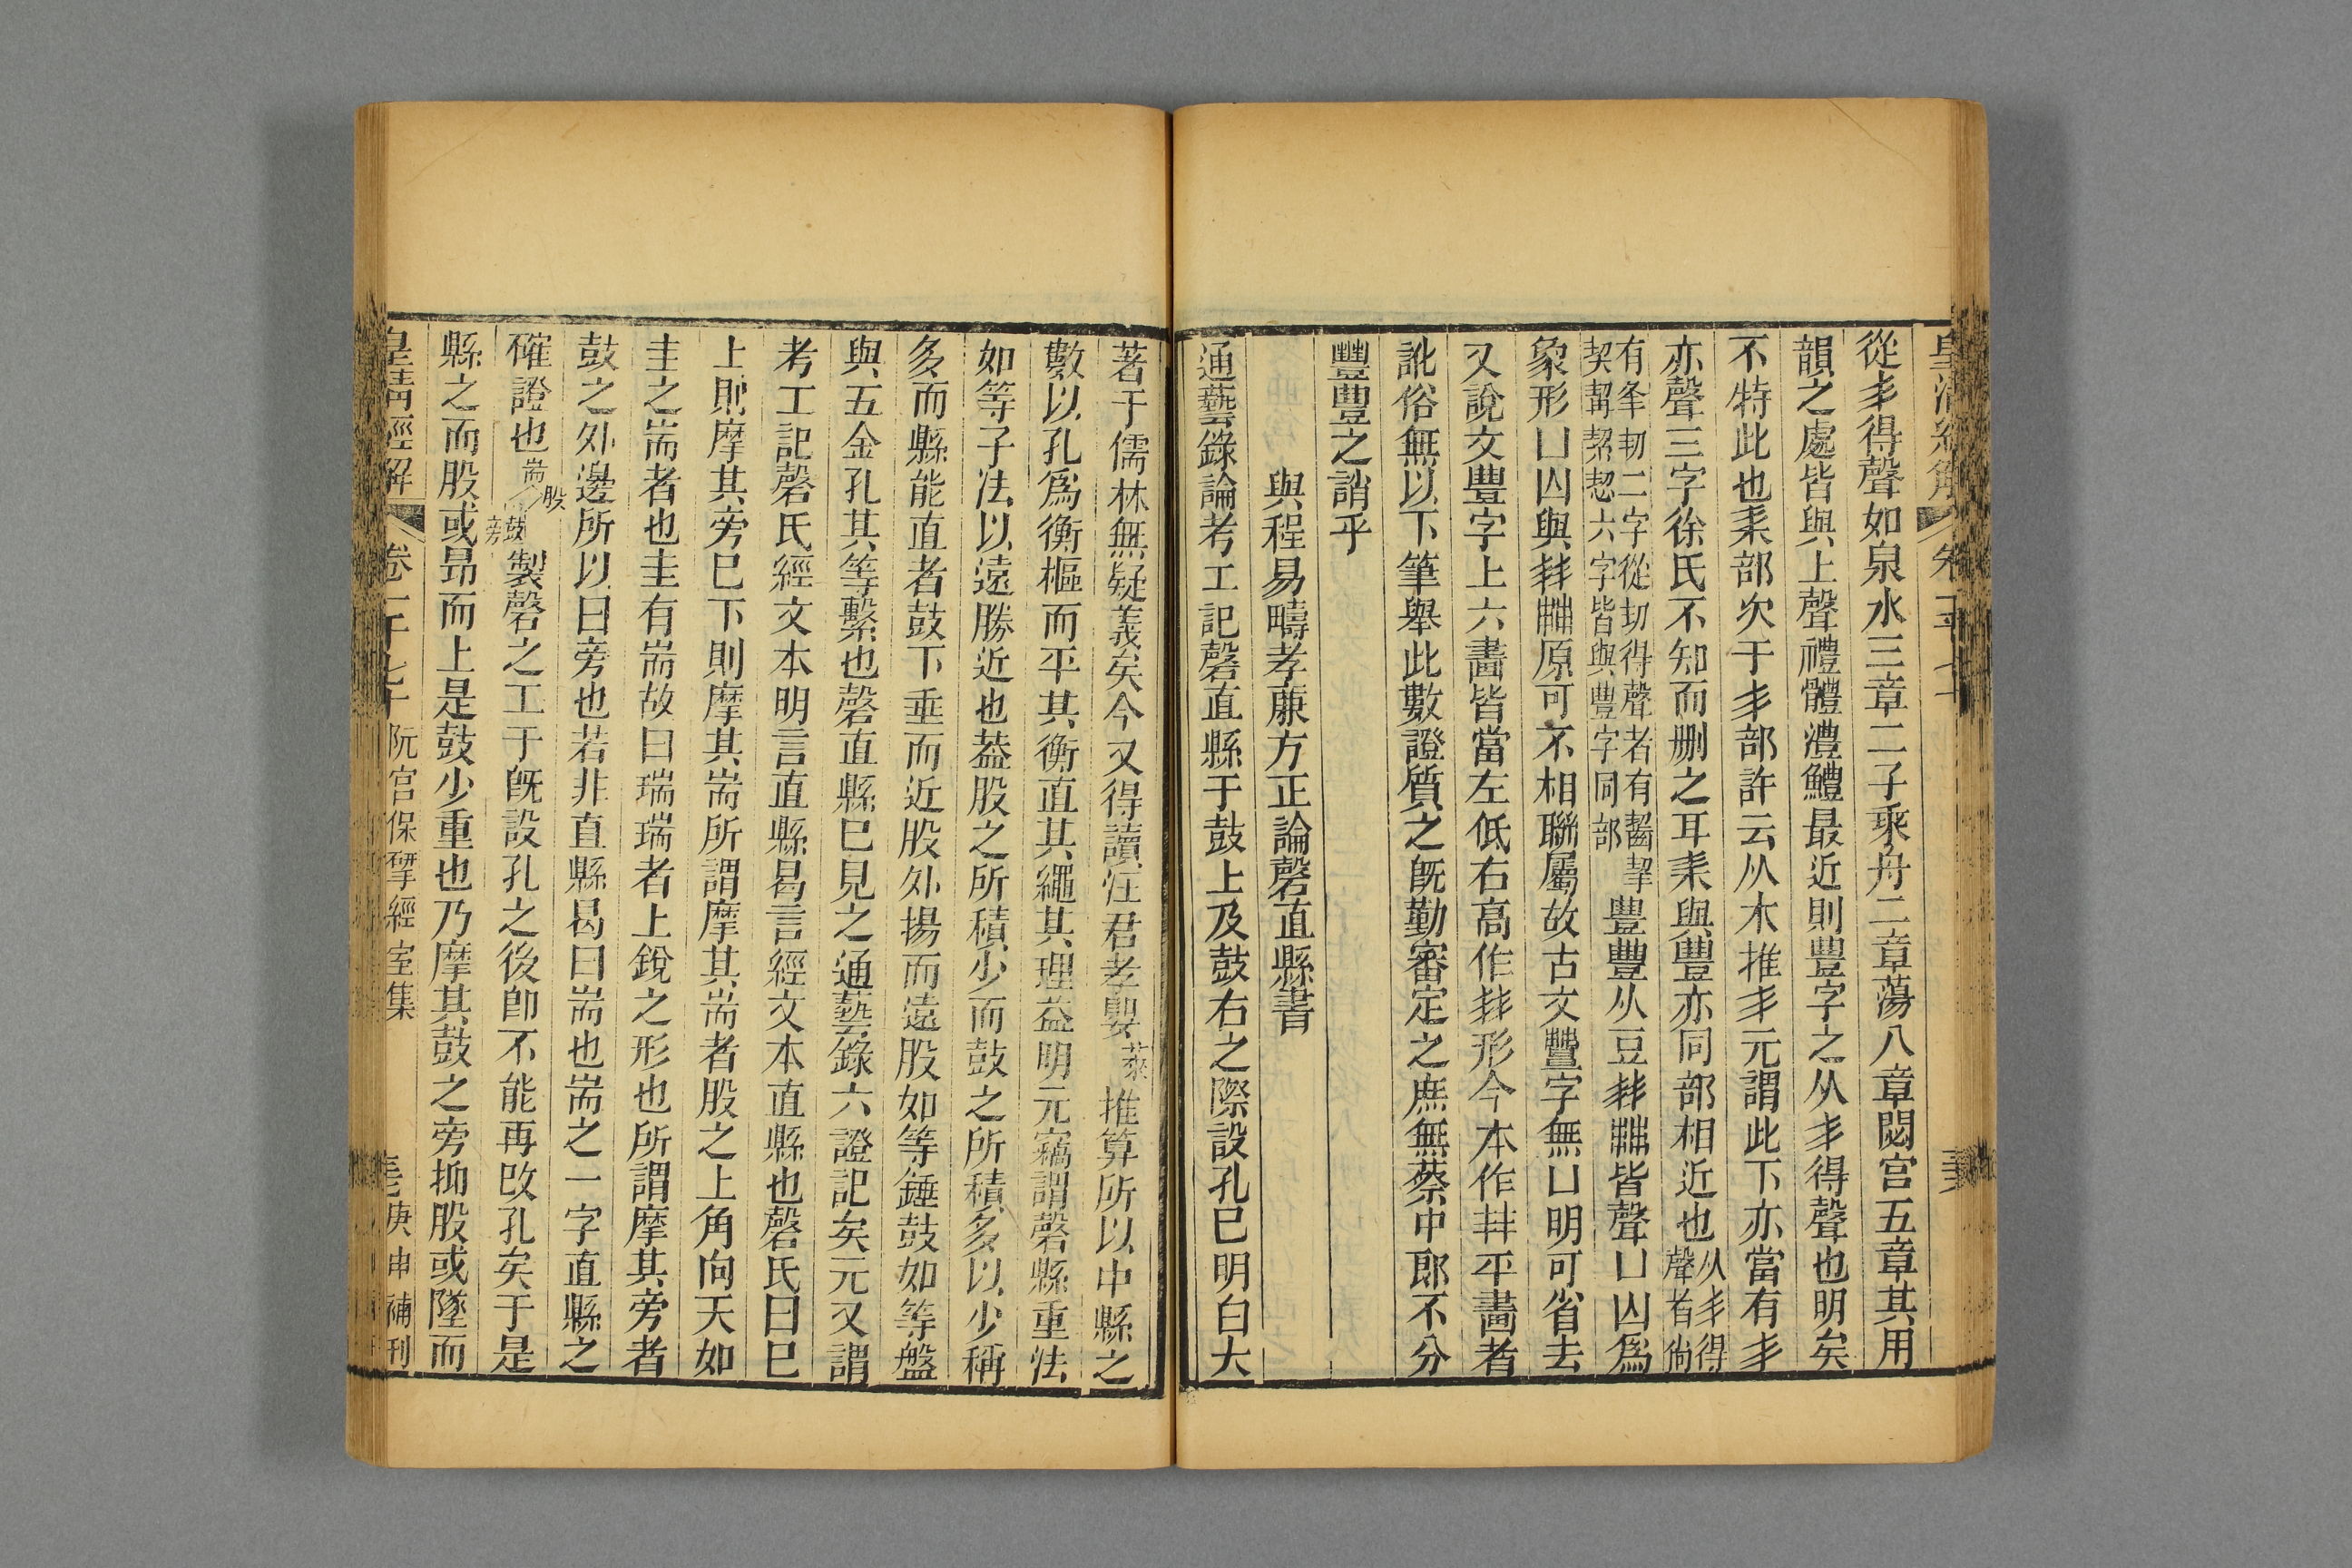 從丯得聲如泉水三章二子乘舟二章蕩八章閟宮五章其用
韻之處皆與上聲禮體澧鱧最近則豊字之从丯得聲也明矣
不特此也耒部次于丯部許云从木推丯元謂此下亦當有丯
亦聲三字徐氏不知而刪之耳耒與豊亦同部相近也从丯得
聲者尙
有夆㓞二字從㓞得聲者有齧挈
契觢絜恝六字皆與豊字同部
豐豊从豆丰丰皆聲凵凶爲
象形凵凶與原可不相聯屬故古文豐字無凵明可省去
又說文豊字上六畵皆當左低右高作形今本作平畵者
訛俗無以下筆舉此數證質之旣勤審定之庶無蔡中郎不分
豐豊之誚乎
與程易疇孝廉方正論磬直縣書
通藝錄論考工記磬直縣于鼓上及鼓右之際設孔已明白大
著于儒林無疑義矣今又得讀汪君孝嬰萊推算所以中縣之
數以孔爲衡樞而平其衡直其繩其理益明元竊謂磬縣重法
如等子法以遠勝近也葢股之所積少而鼓之所積多以少稱
多而縣能直者鼓下垂而近股外揚而遠股如等錘鼓如等盤
與五金孔其等繫也磬直縣已見之通藝錄六證記矣元又謂
考工記磬氏經文本明言直縣曷言經文本直縣也磬氏曰已
上則摩其旁已下則摩其耑所謂摩其耑者股之上角向天如
圭之耑者也圭有耑故曰瑞瑞者上銳之形也所謂摩其旁者
鼓之外邊所以曰旁也若非直縣曷曰耑也耑之一字直縣之
確證也耑股鼓旁製磬之工于旣設孔之後卽不能再改孔矣于是
縣之而股或昻而上是鼓少重也乃摩其鼓之旁抑股或墜而
皇淸經解 卷一千七十 阮宮保揅經室集 庚申補刊